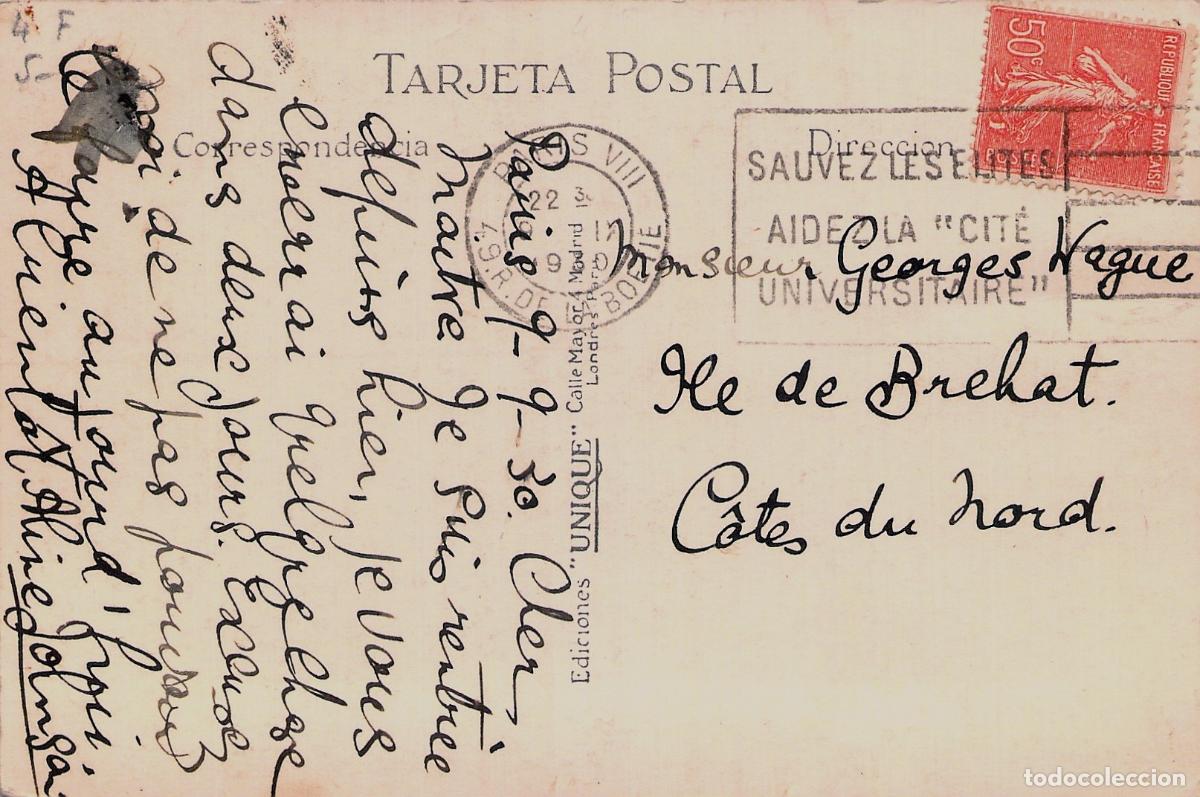 4 F
5-
TARJETA POSTAL
Correspondencia
Direccion
50c
REPUBLIQUE FRANÇAISE
POSTES
PARIS VIII
22
49. R. DE LA BOETIE
SAUVEZ LES ELITES
AIDEZ LA "CITÉ
UNIVERSITAIRE"
Monsieur Georges Wague
Ile de Brehat.
Côtes du Nord.
Ediciones "UNIQUE" Calle Mayor, 4 Madrid
Londres Paris
Paris 9-9-30. Cher
Maitre Je suis rentrée
depuis hier, je vous
enverrai quelque chose
dans deux jours. Excusez
moi de ne pas pouvoir
le faire aujourd'hui.
A bientot
todocoleccion